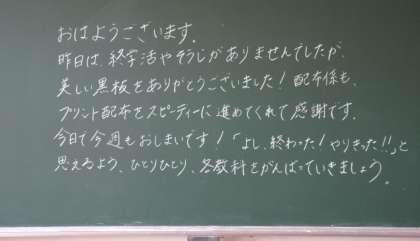 おはようございます。
昨日は、終学活やそうじがありませんでしたが、
美しい黒板をありがとうございました！配布係も、
プリント配布をスピーディーに進めてくれて感謝です。
今日で今週もおしまいです！「よし、終わった！やりきった!!」と
思えるよう、ひとりひとり、各教科をがんばっていきましょう。